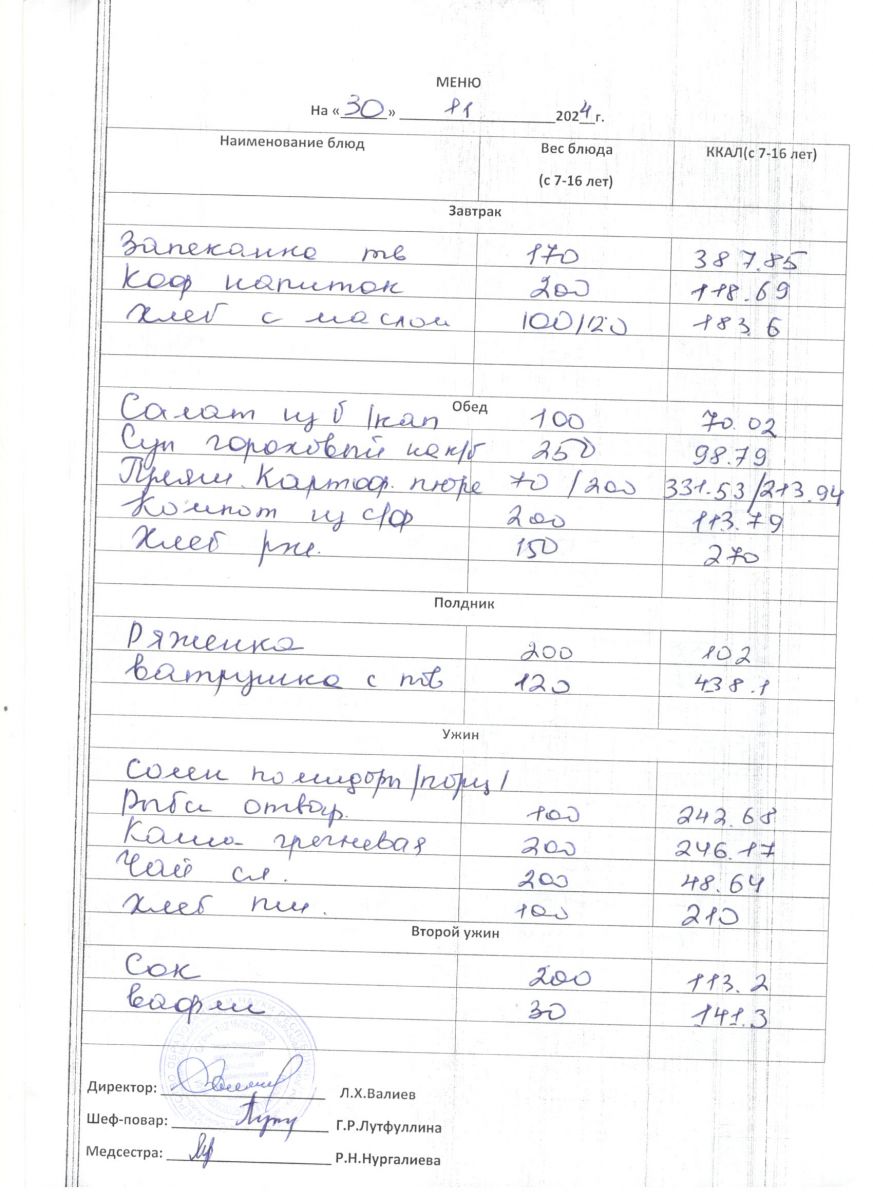 МЕНЮ
На «30» 11 2024 г.
Наименование блюд Вес блюда (с 7-16 лет) ККАЛ(с 7-16 лет)
Завтрак
Запеканка тв 170 387.85
Коф напиток 200 118.69
Хлеб с маслом 100/20 183.6
Обед
Салат из б/кап 100 70.02
Суп гороховый на к/б 250 98.79
Картоф. пюре 70/200 331.53/213.94
Компот из с/ф 200 113.79
Хлеб рж. 150 270
Полдник
Ряженка 200 102
Ватрушка с тв 120 438.1
Ужин
Солен помидоры/порц/
Рыба отвар. 100 242.68
Каша гречневая 200 246.17
Чай сл. 200 48.64
Хлеб пш. 100 210
Второй ужин
Сок 200 113.2
Вафли 30 141.3
Директор: Л.Х.Валиев
Шеф-повар: Г.Р.Лутфуллина
Медсестра: Р.Н.Нургалиева